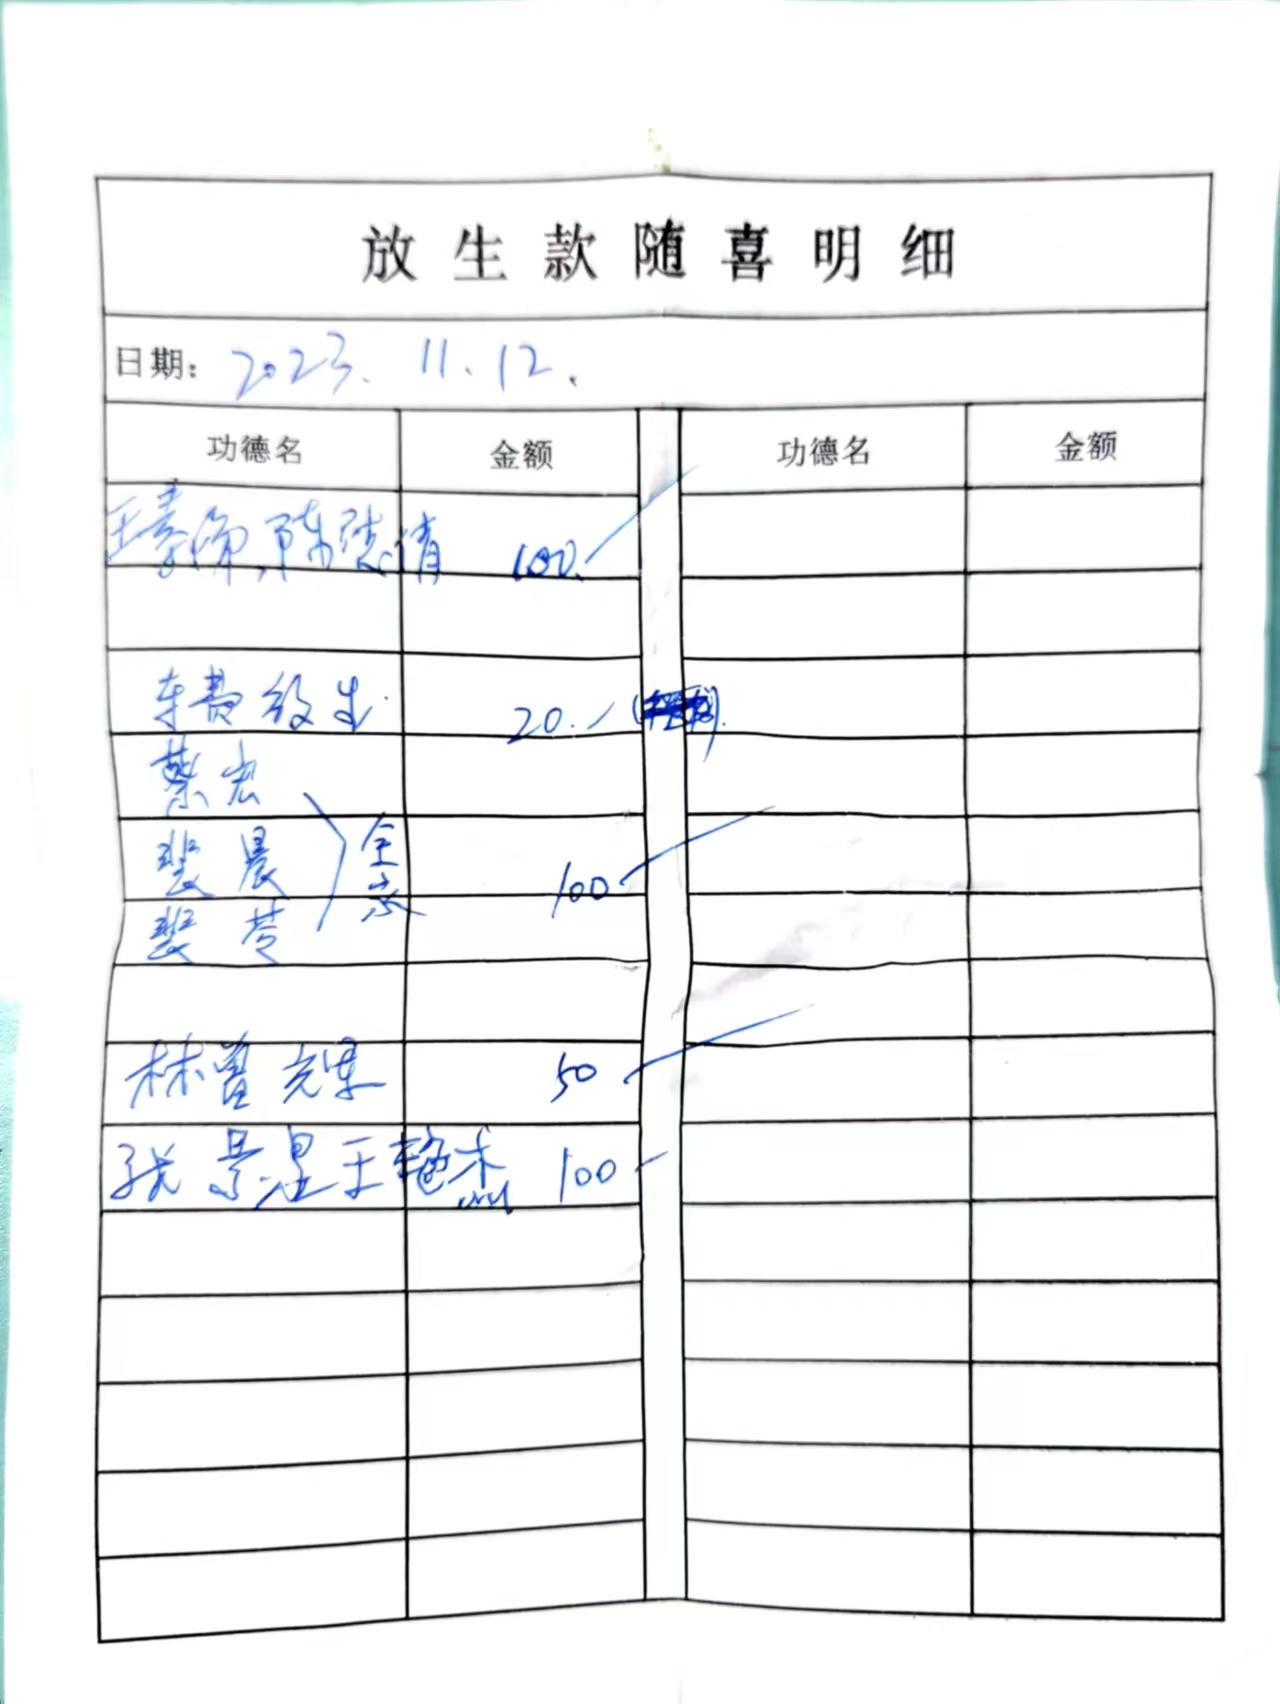 放生款随喜明细
日期: 2023. 11. 12.
功德名 金额 功德名 金额
王秦 陈德倩 100.
车费放生 20.
蔡宏
裴晨 全家 100
裴苓
林曾光 50
张景星王艳杰 100